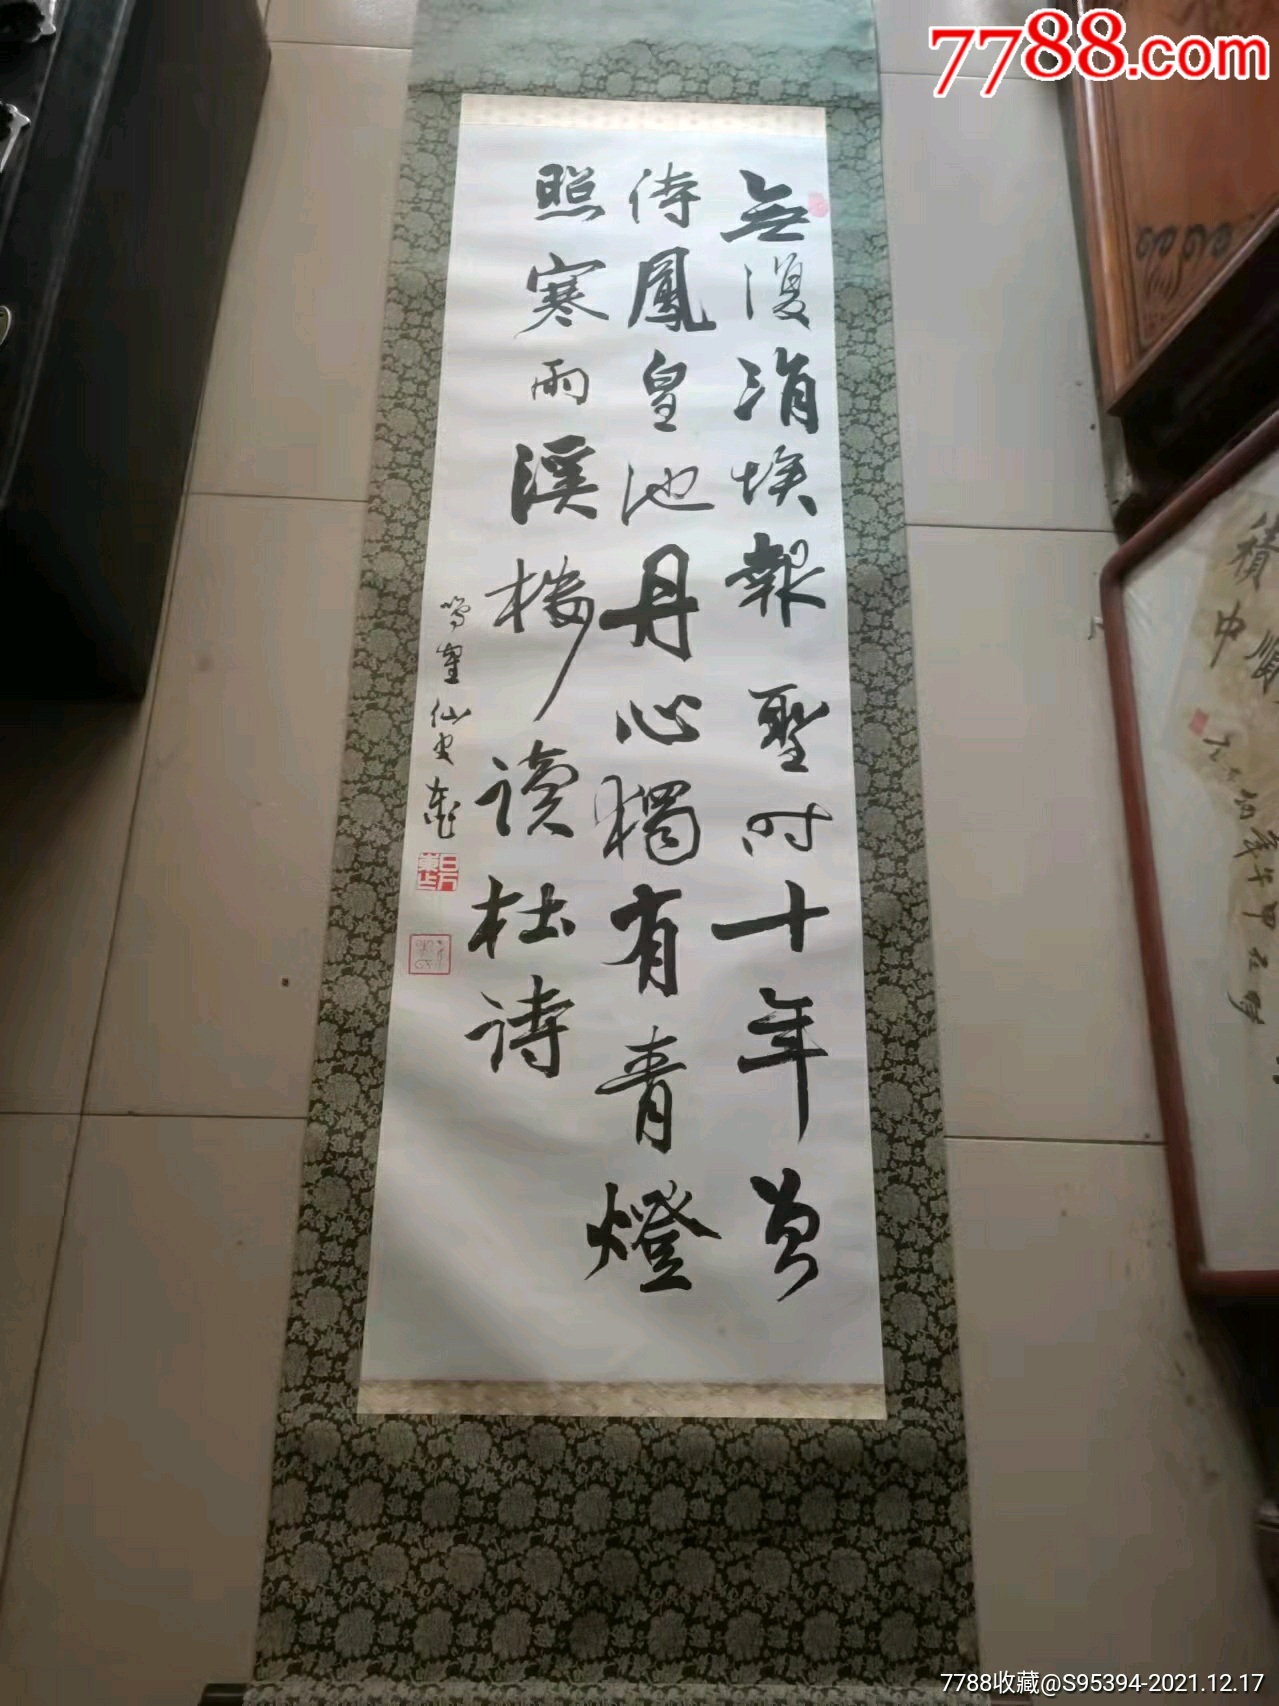 7788.com
無復涓埃報聖时十年曽
侍鳳皇池丹心獨有青燈
照寒雨溪楼读杜诗
積
中
順
7788收藏@S95394-2021.12.17